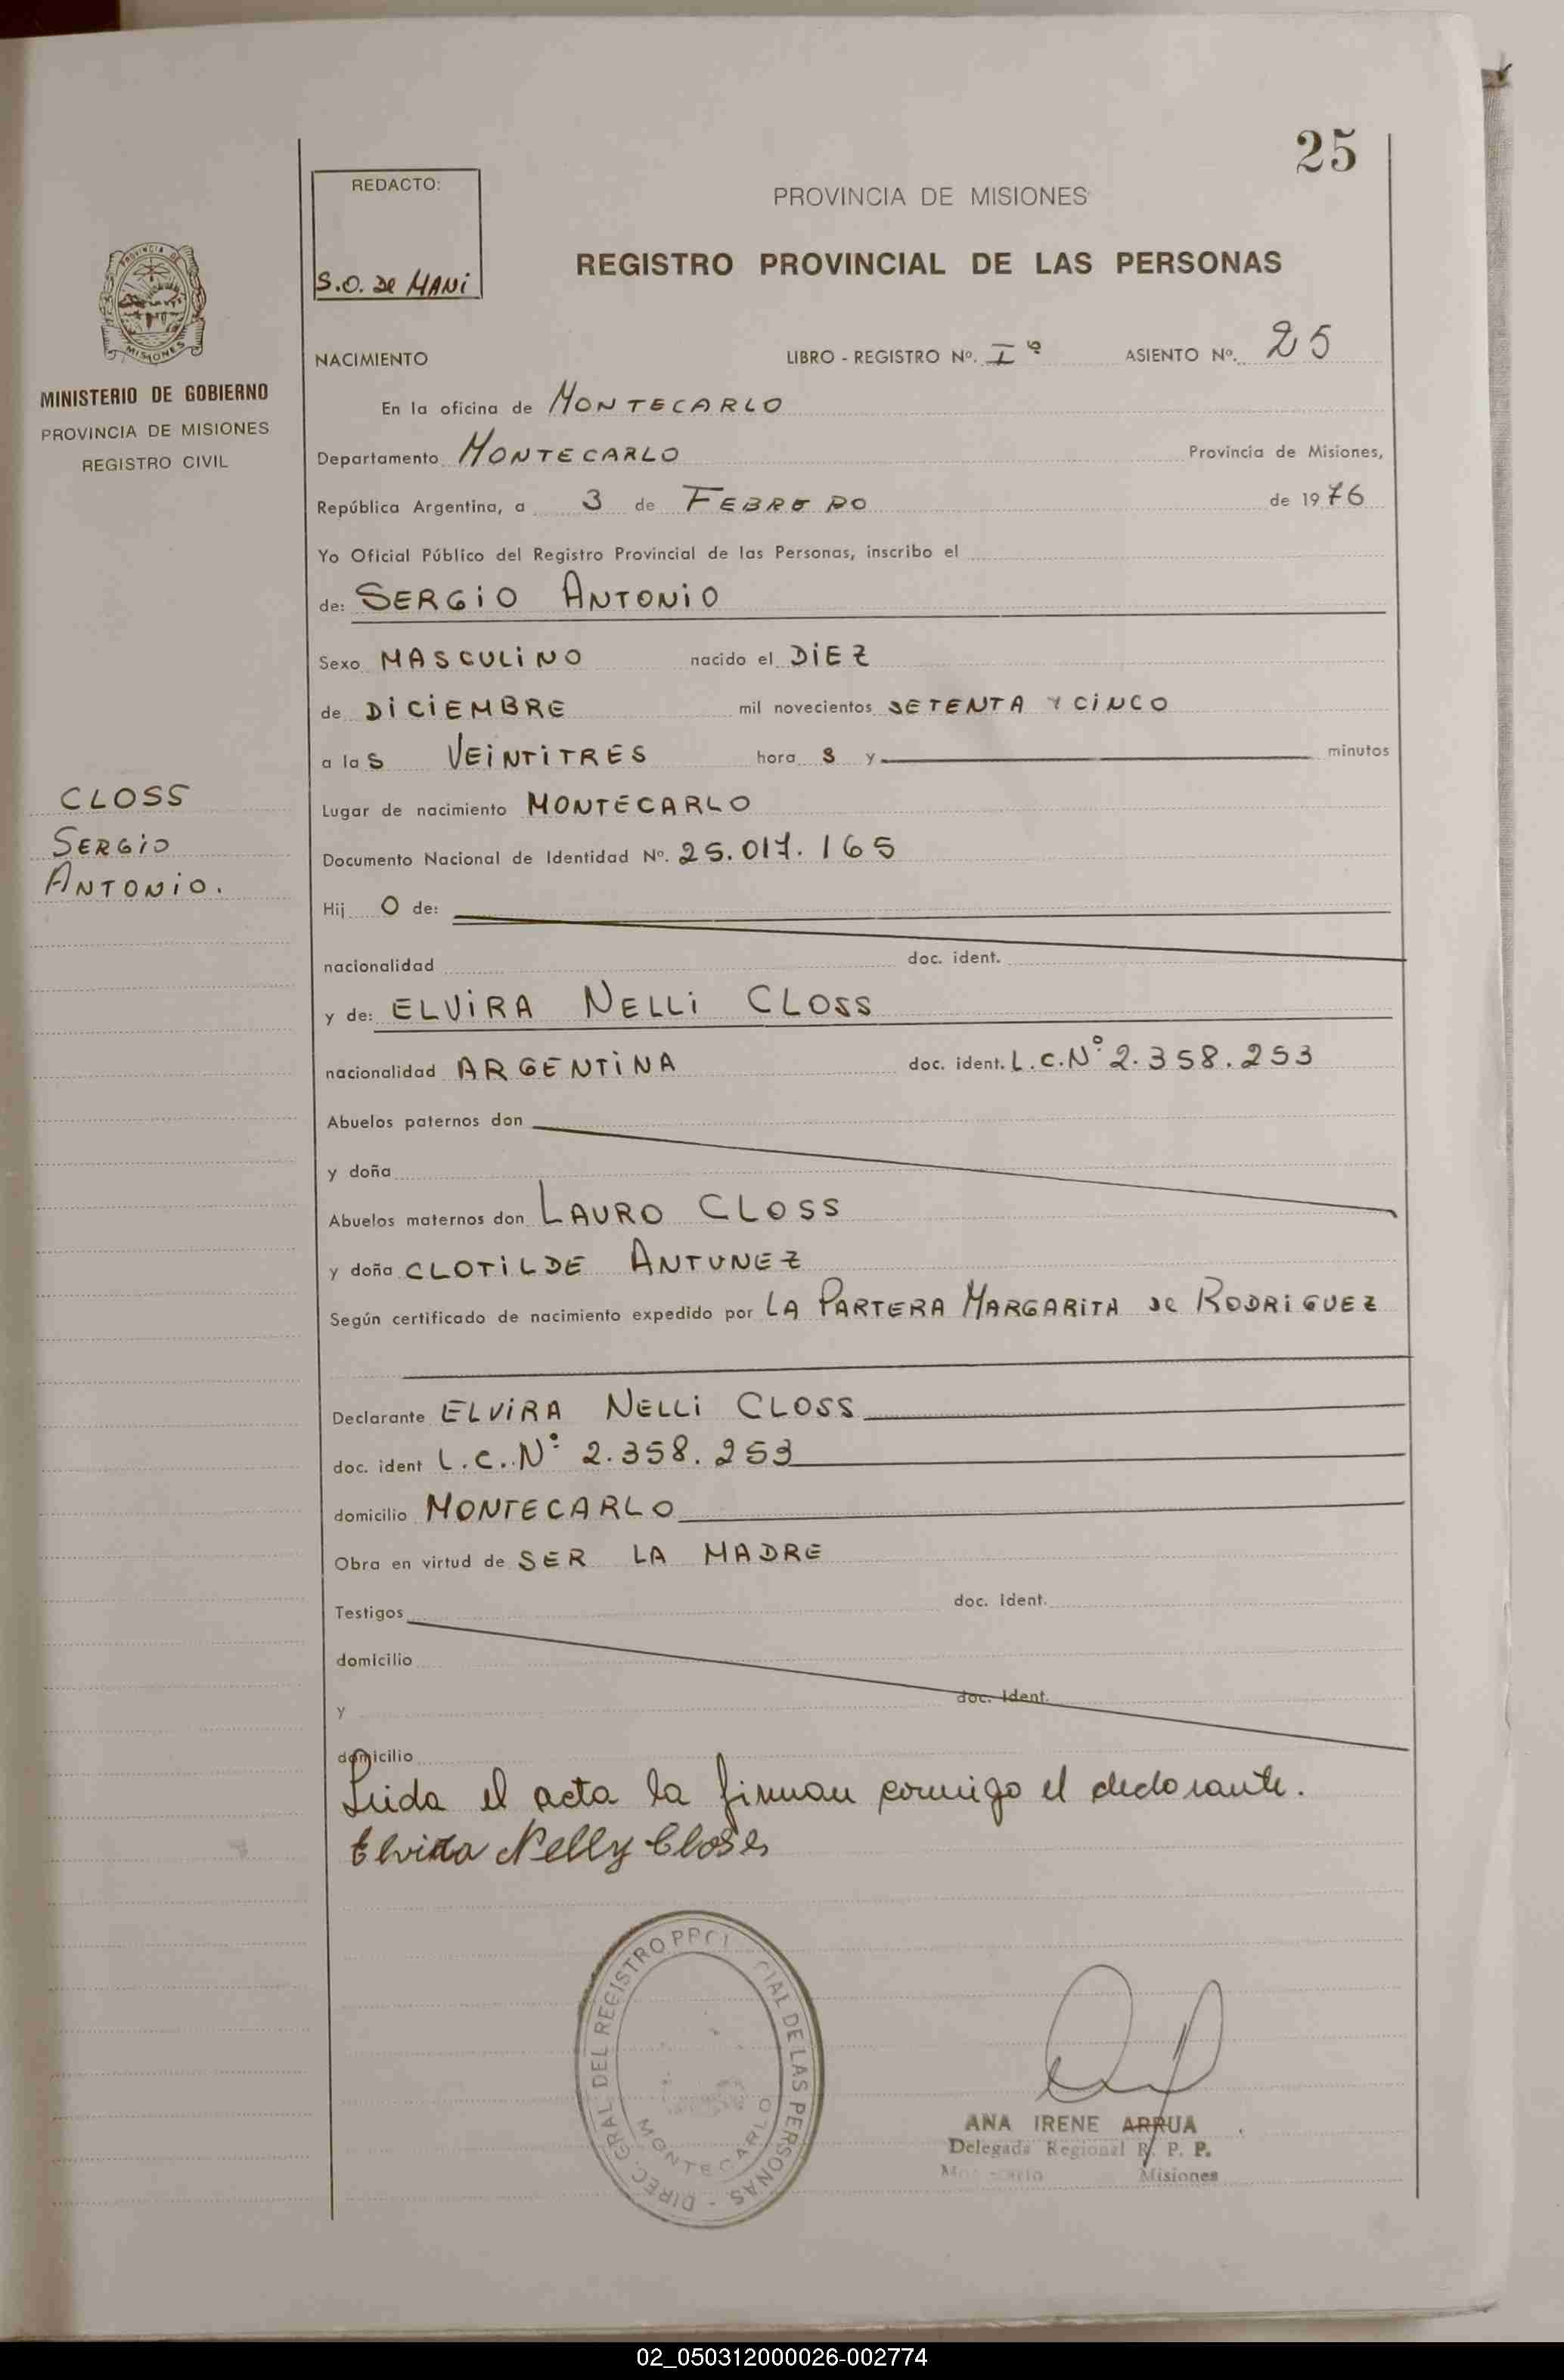 25
REDACTO:
S.O. De MANi
PROVINCIA DE MISIONES
REGISTRO PROVINCIAL DE LAS PERSONAS
PROVINCIA DE
MISIONES
MINISTERIO DE GOBIERNO
PROVINCIA DE MISIONES
REGISTRO CIVIL
NACIMIENTO LIBRO - REGISTRO Nº. I º ASIENTO Nº. 25
En la oficina de MONTECARLO
Departamento MONTECARLO Provincia de Misiones,
República Argentina, a 3 de FEBRERO de 1976
Yo Oficial Público del Registro Provincial de las Personas, inscribo el
de: SERGiO ANTONiO
Sexo MASCULiNO nacido el DiEZ
de DiCiEMBRE mil novecientos SETENTA Y CiNCO
a la S VEiNTiTRES hora S y minutos
Lugar de nacimiento MONTECARLO
Documento Nacional de Identidad Nº. 25.017.165
Hij O de:
nacionalidad doc. ident.
y de: ELViRA NELLi CLOSS
nacionalidad ARGENTiNA doc. ident. L.C.Nº 2.358.253
Abuelos paternos don
y doña
Abuelos maternos don LAURO CLOSS
y doña CLOTiLDE ANTUNEZ
Según certificado de nacimiento expedido por LA PARTERA MARGARiTA De RODRiGUEZ
Declarante ELViRA NELLi CLOSS
doc. ident L.C.Nº 2.358.253
domicilio MONTECARLO
Obra en virtud de SER LA MADRE
Testigos doc. ident.
domicilio
y doc. ident.
domicilio
Leida el acta la firman conmigo el declarante.
Elvira Nelly Closs
CLOSS
SERGiO
ANTONiO.
DIREC. GRAL. DEL REGISTRO DE LAS PERSONAS -
MONTECARLO
ANA IRENE ARRUA
Delegada Regional R. P. P.
Misiones
02_050312000026-002774